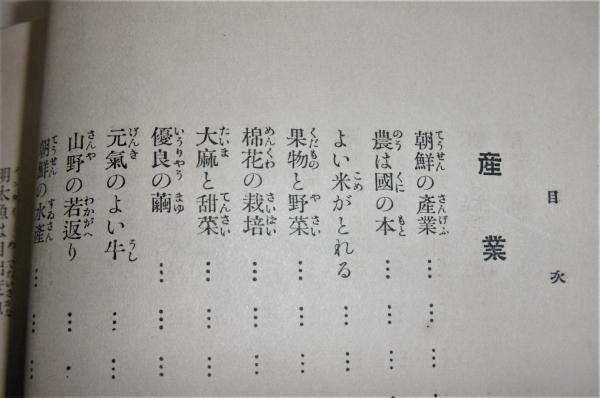 目次
産業
朝鮮の産業
農は國の本
よい米がとれる
果物と野菜
棉花の栽培
大麻と甜菜
優良の繭
元氣のよい牛
山野の若返り
朝鮮の水産